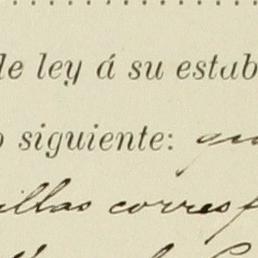 de ley á su estab
o siguiente: que
illas corresp